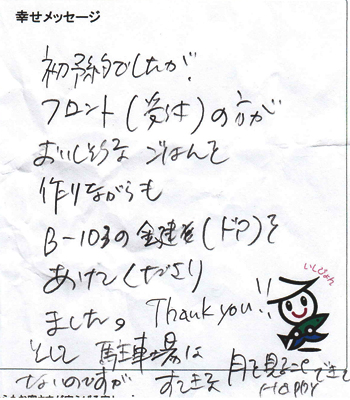 幸せメッセージ
初予約でしたが、
フロント(受付)の方が
おいしそうな ごはんを
作りながらも
B-103の鍵(ドア)を
あけてくださり
ました。 Thank you!!
いしぴょん
そして 駐車場は
ないのですが すてきな 月を見ることできて
HAPPY